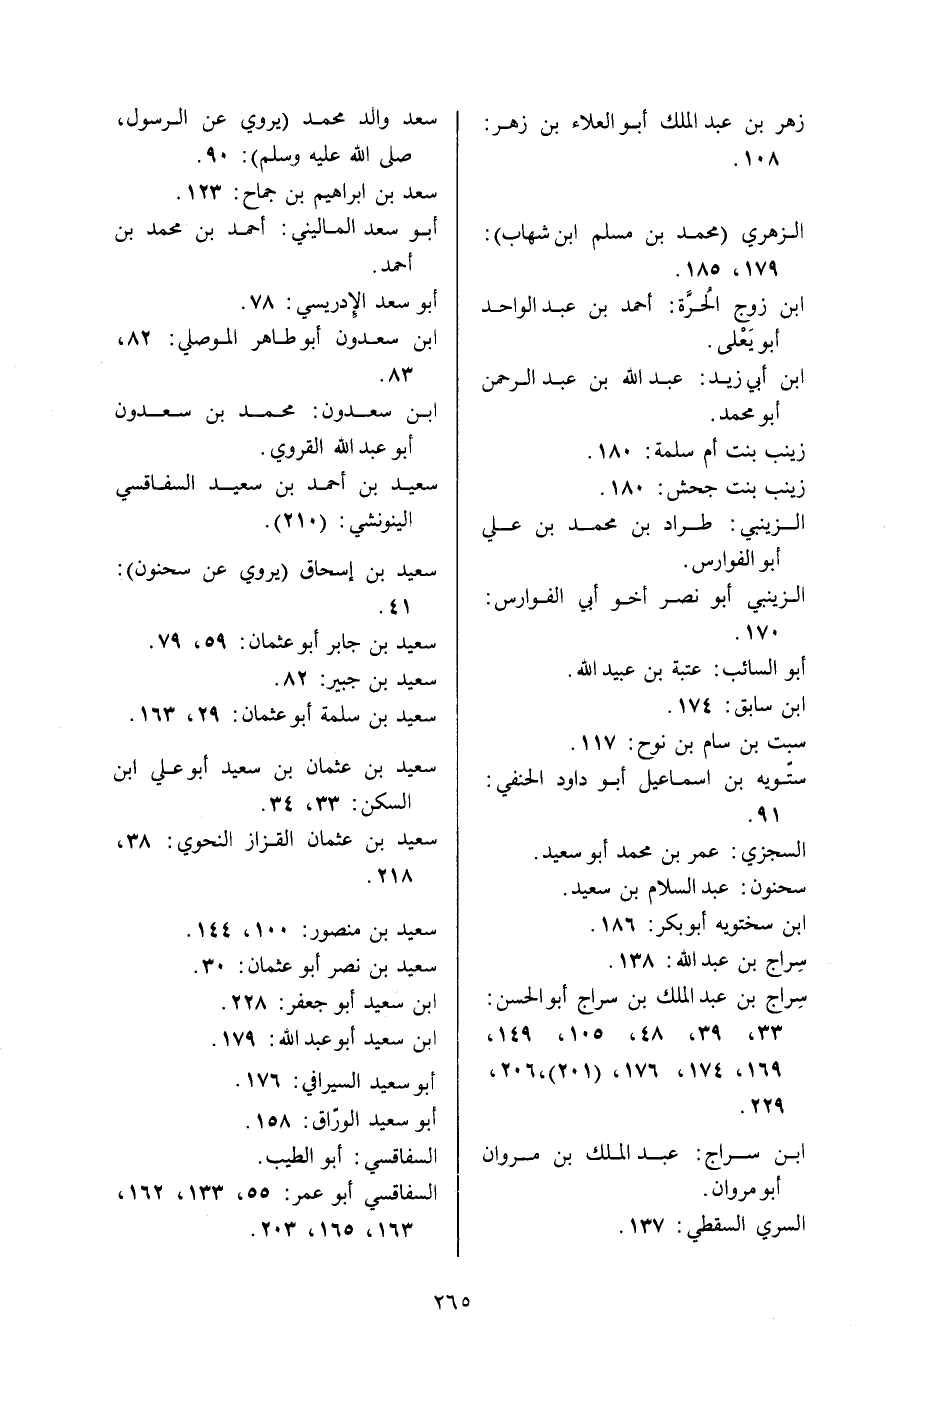 زهر بن عبد الملك أبو العلاء بن زهر:
١٠٨.
الزهري (محمد بن مسلم ابن شهاب):
١٧٩، ١٨٥.
ابن زوج الحُرَّة: أحمد بن عبد الواحد
أبو يَعْلى.
ابن أبي زيد: عبد الله بن عبد الرحمن
أبو محمد.
زينب بنت أم سلمة: ١٨٠.
زينب بنت جحش: ١٨٠.
الزينبي: طراد بن محمد بن علي
أبو الفوارس.
الزينبي أبو نصر أخو أبي الفوارس:
١٧٠.
أبو السائب: عتبة بن عبيد الله.
ابن سابق: ١٧٤.
سبت بن سام بن نوح: ١١٧.
ستّويه بن اسماعيل أبو داود الحنفي:
٩١.
السجزي: عمر بن محمد أبو سعيد.
سحنون: عبد السلام بن سعيد.
ابن سختويه أبو بكر: ١٨٦.
سِراج بن عبد الله: ١٣٨.
سِراج بن عبد الملك بن سراج أبو الحسن:
٣٣، ٣٩، ٤٨، ١٠٥، ١٤٩،
١٦٩، ١٧٤، ١٧٦، (٢٠١)،٢٠٦،
٢٢٩.
ابن سراج: عبد الملك بن مروان
أبو مروان.
السري السقطي: ١٣٧.
سعد والد محمد (يروي عن الرسول،
صلى الله عليه وسلم): ٩٠.
سعد بن ابراهيم بن جماح: ١٢٣.
أبو سعد الماليني: أحمد بن محمد بن
أحمد.
أبو سعد الإدريسي: ٧٨.
ابن سعدون أبو طاهر الموصلي: ٨٢،
٨٣.
ابن سعدون: محمد بن سعدون
أبو عبد الله القروي.
سعيد بن أحمد بن سعيد السفاقسي
الينونشي: (٢١٠).
سعيد بن إسحاق (يروي عن سحنون):
٤١.
سعيد بن جابر أبو عثمان: ٥٩، ٧٩.
سعيد بن جبير: ٨٢.
سعيد بن سلمة أبو عثمان: ٢٩، ١٦٣.
سعيد بن عثمان بن سعيد أبو علي ابن
السكن: ٣٣، ٣٤.
سعيد بن عثمان القزاز النحوي: ٣٨،
٢١٨.
سعيد بن منصور: ١٠٠، ١٤٤.
سعيد بن نصر أبو عثمان: ٣٠.
ابن سعيد أبو جعفر: ٢٢٨.
ابن سعيد أبو عبد الله: ١٧٩.
أبو سعيد السيرافي: ١٧٦.
أبو سعيد الورّاق: ١٥٨.
السفاقسي: أبو الطيب.
السفاقسي أبو عمر: ٥٥، ١٣٣، ١٦٢،
١٦٣، ١٦٥، ٢٠٣.
٢٦٥